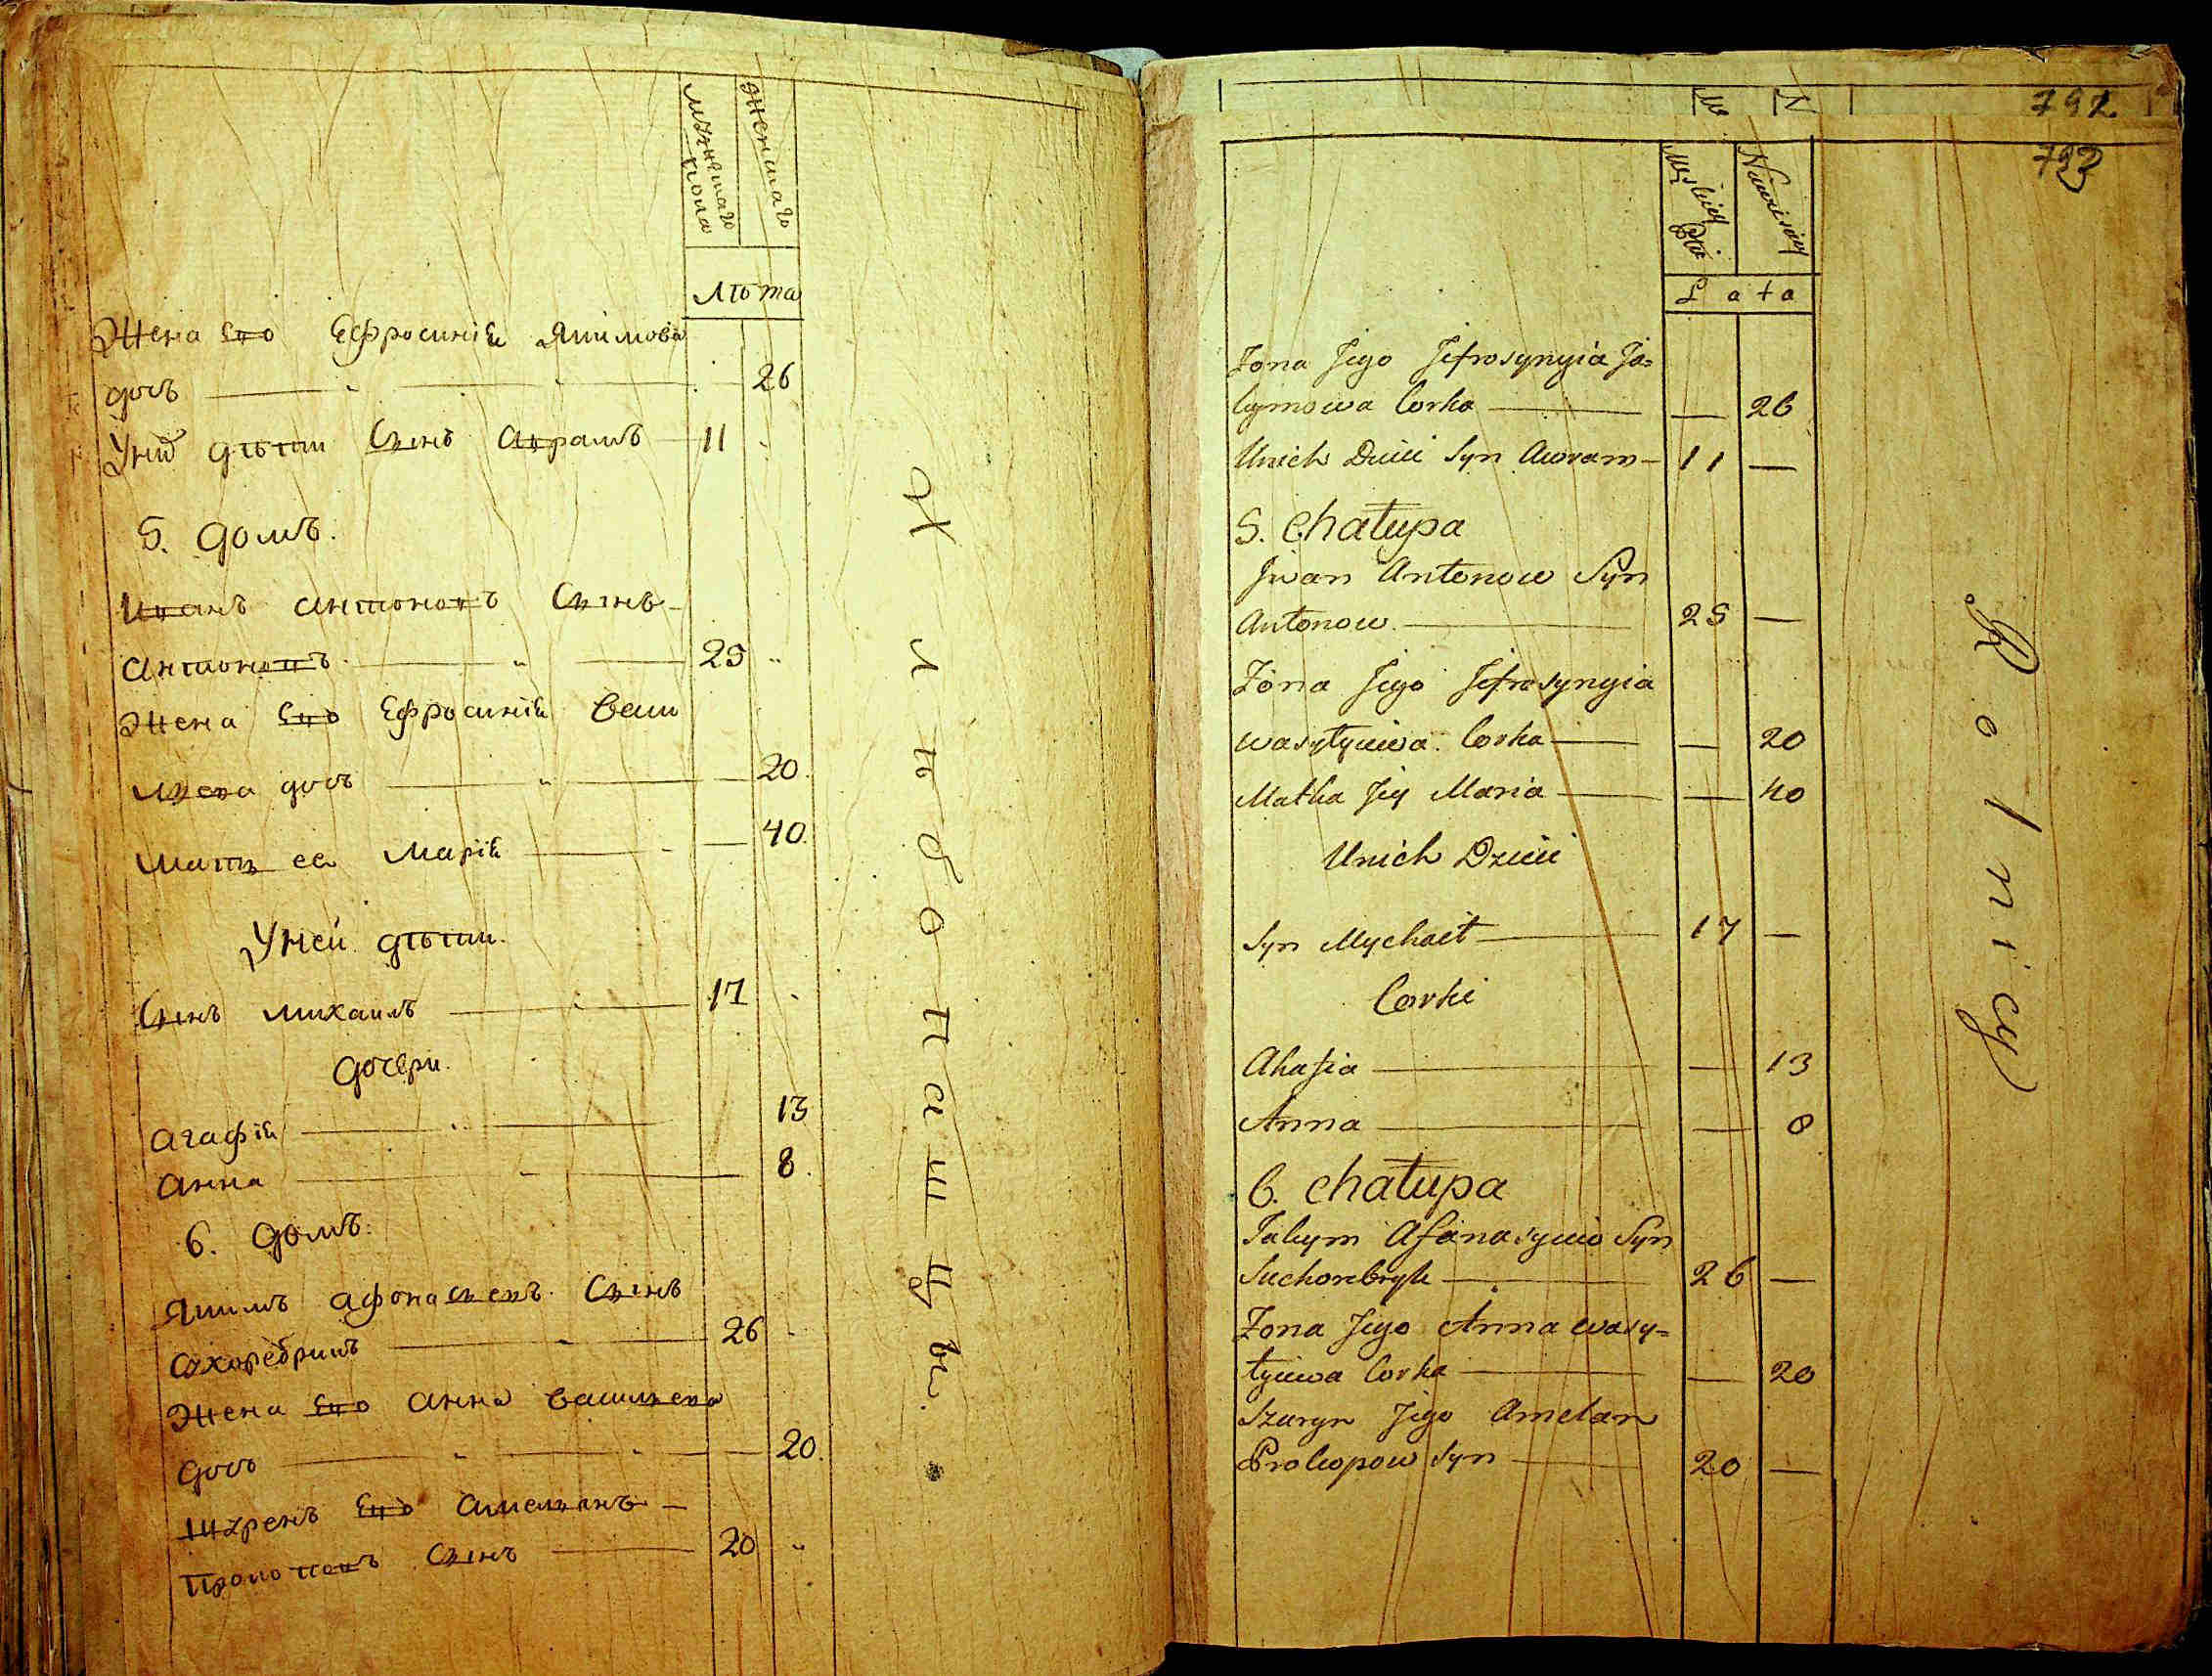 мужеска пола
женска
Лѣта
Жена Его Ефросинія Якимова
дочь 26
Унихъ дѣти Сынъ Аврамъ 11
5. домъ.
Иванъ Антоновъ Сынъ
Антоновъ 25
Жена Его Ефросинія Васи
льева дочь 20
Мать ея Марія 40
Уней дѣти.
Сынъ Михаилъ 17
дочери
Агафія 13
Анна 8
6. домъ.
Якимъ Афонасьевъ Сынъ
Сухоребрикъ 26
Жена Его Анна Васильева
дочь 20
Шуренъ Его Амельянъ
Прокоповъ Сынъ 20
Хлѣбопашцы.
792
793
Męskiej Płci
Niewieściej
Lata
Żona Jego Jefrosynyia Ja=
kymowa Corka — 26
Unich Dzieci Syn Awram 11 —
5. Chałupa
Jwan Antonow Syn
Antonow 25 —
Żona Jego Jefrosynyia
Wasyłyiewa Corka — 20
Matka Jey Maria — 40
Unich Dzieci
Syn Mychaił 17 —
Corki
Ahafia — 13
Anna — 8
6. Chałupa
Jakym Afanasyiew Syn
Suchorebryk 26 —
Żona Jego Anna Wasy=
łyiewa Corka — 20
Szuryn Jego Amelan
Prokopow Syn 20 —
Rolnicy